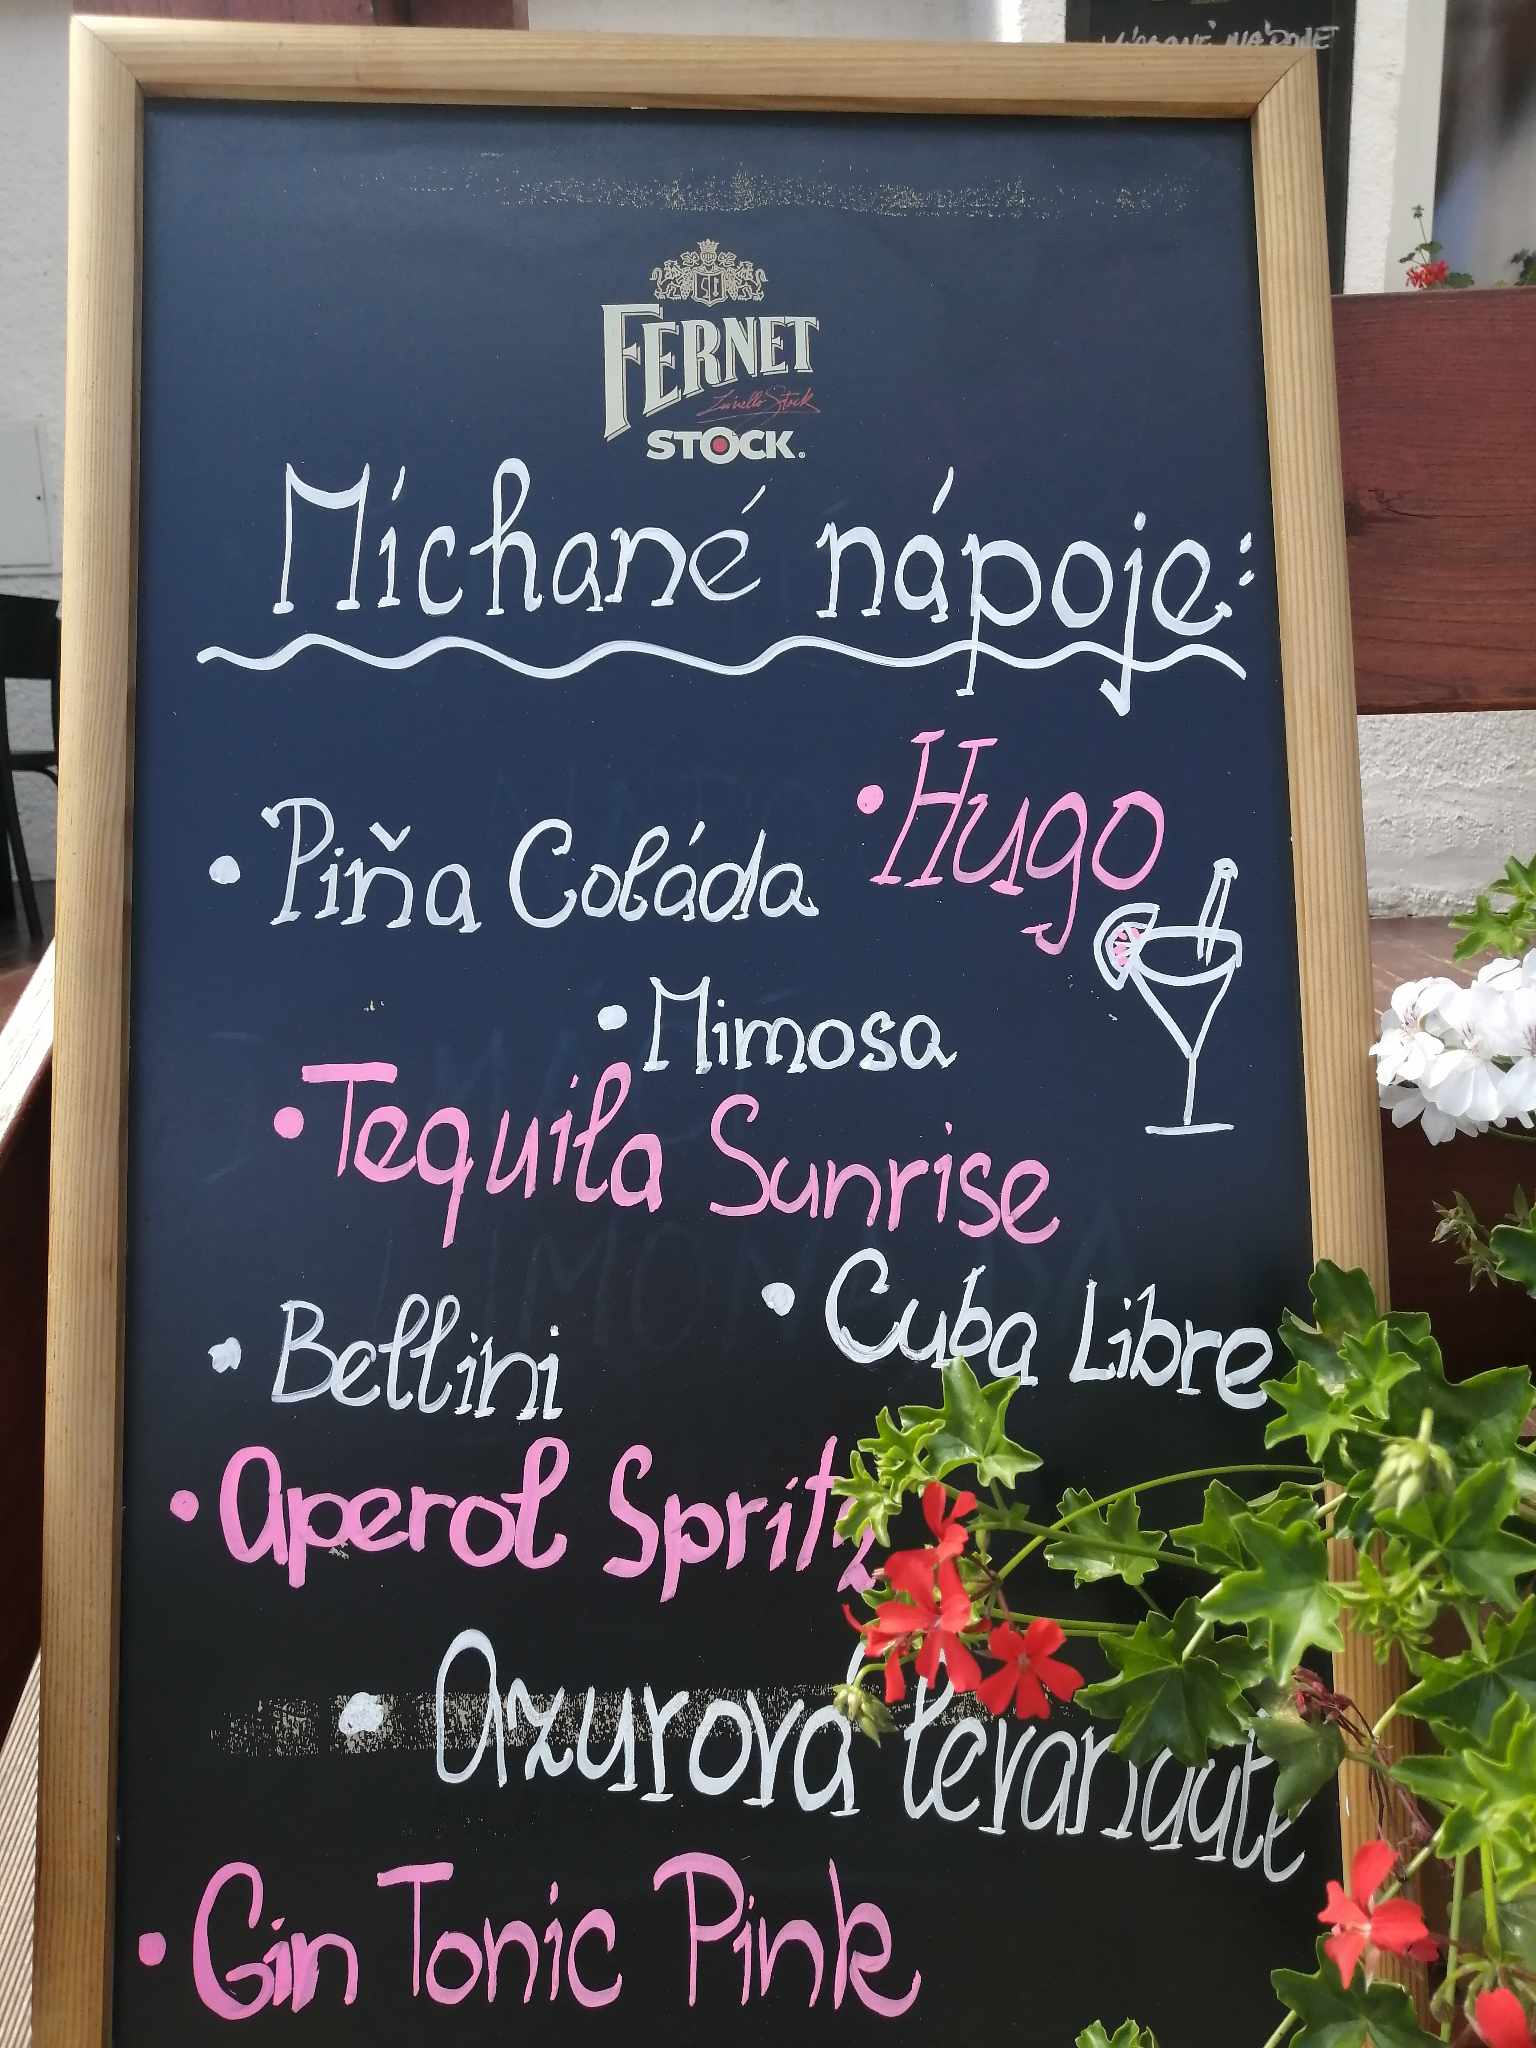 MÍCHANÉ NÁPOJE
FERNET
STOCK
Míchané nápoje:
• Hugo
• Piňa Coláda
• Mimosa
• Tequila Sunrise
• Cuba Libre
• Bellini
• Aperol Spritz
• Azurová levandule
• Gin Tonic Pink